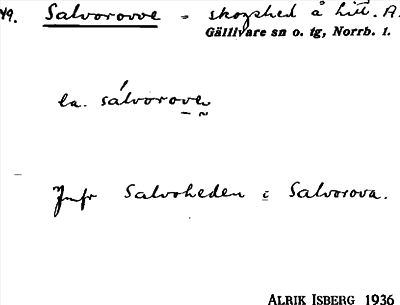 49. Salvorovve - skogshed å litt. A.
Gällivare sn o. tg, Norrb. l.
la. sálvorove
Jmfr Salvoheden i Salvorova.
ALRIK ISBERG 1936